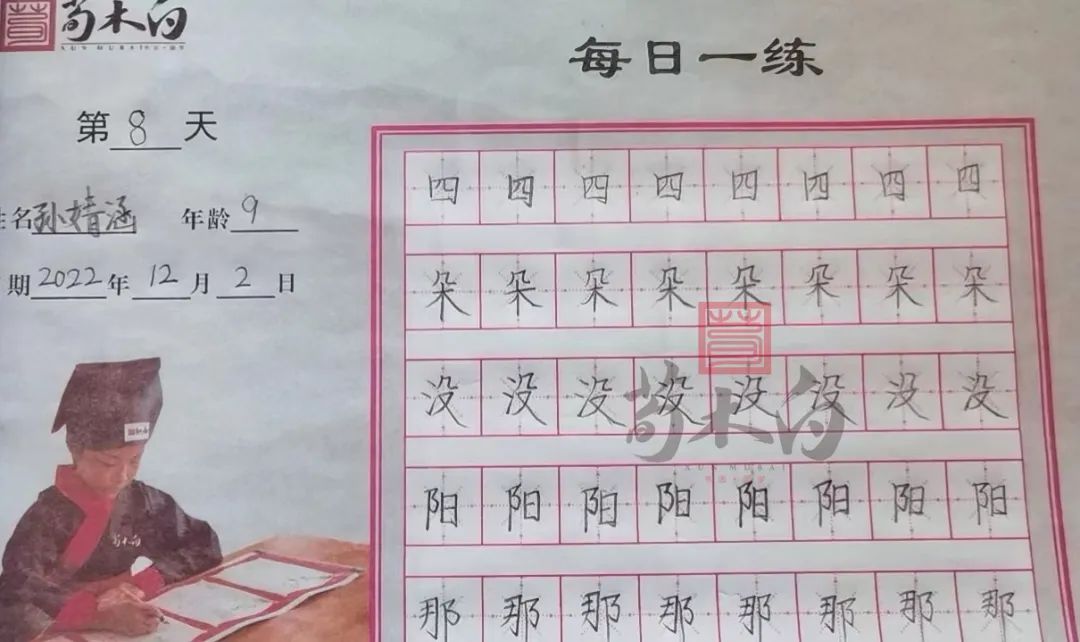 荀木白
XUN MUBAI
每日一练
第 8 天
姓名 孙婧涵 年龄 9
日期 2022 年 12 月 2 日
四 四 四 四 四 四 四 四
朵 朵 朵 朵 朵 朵 朵 朵
没 没 没 没 没 没 没 没
荀木白
XUN MUBAI
阳 阳 阳 阳 阳 阳 阳 阳
那 那 那 那 那 那 那 那
荀木白